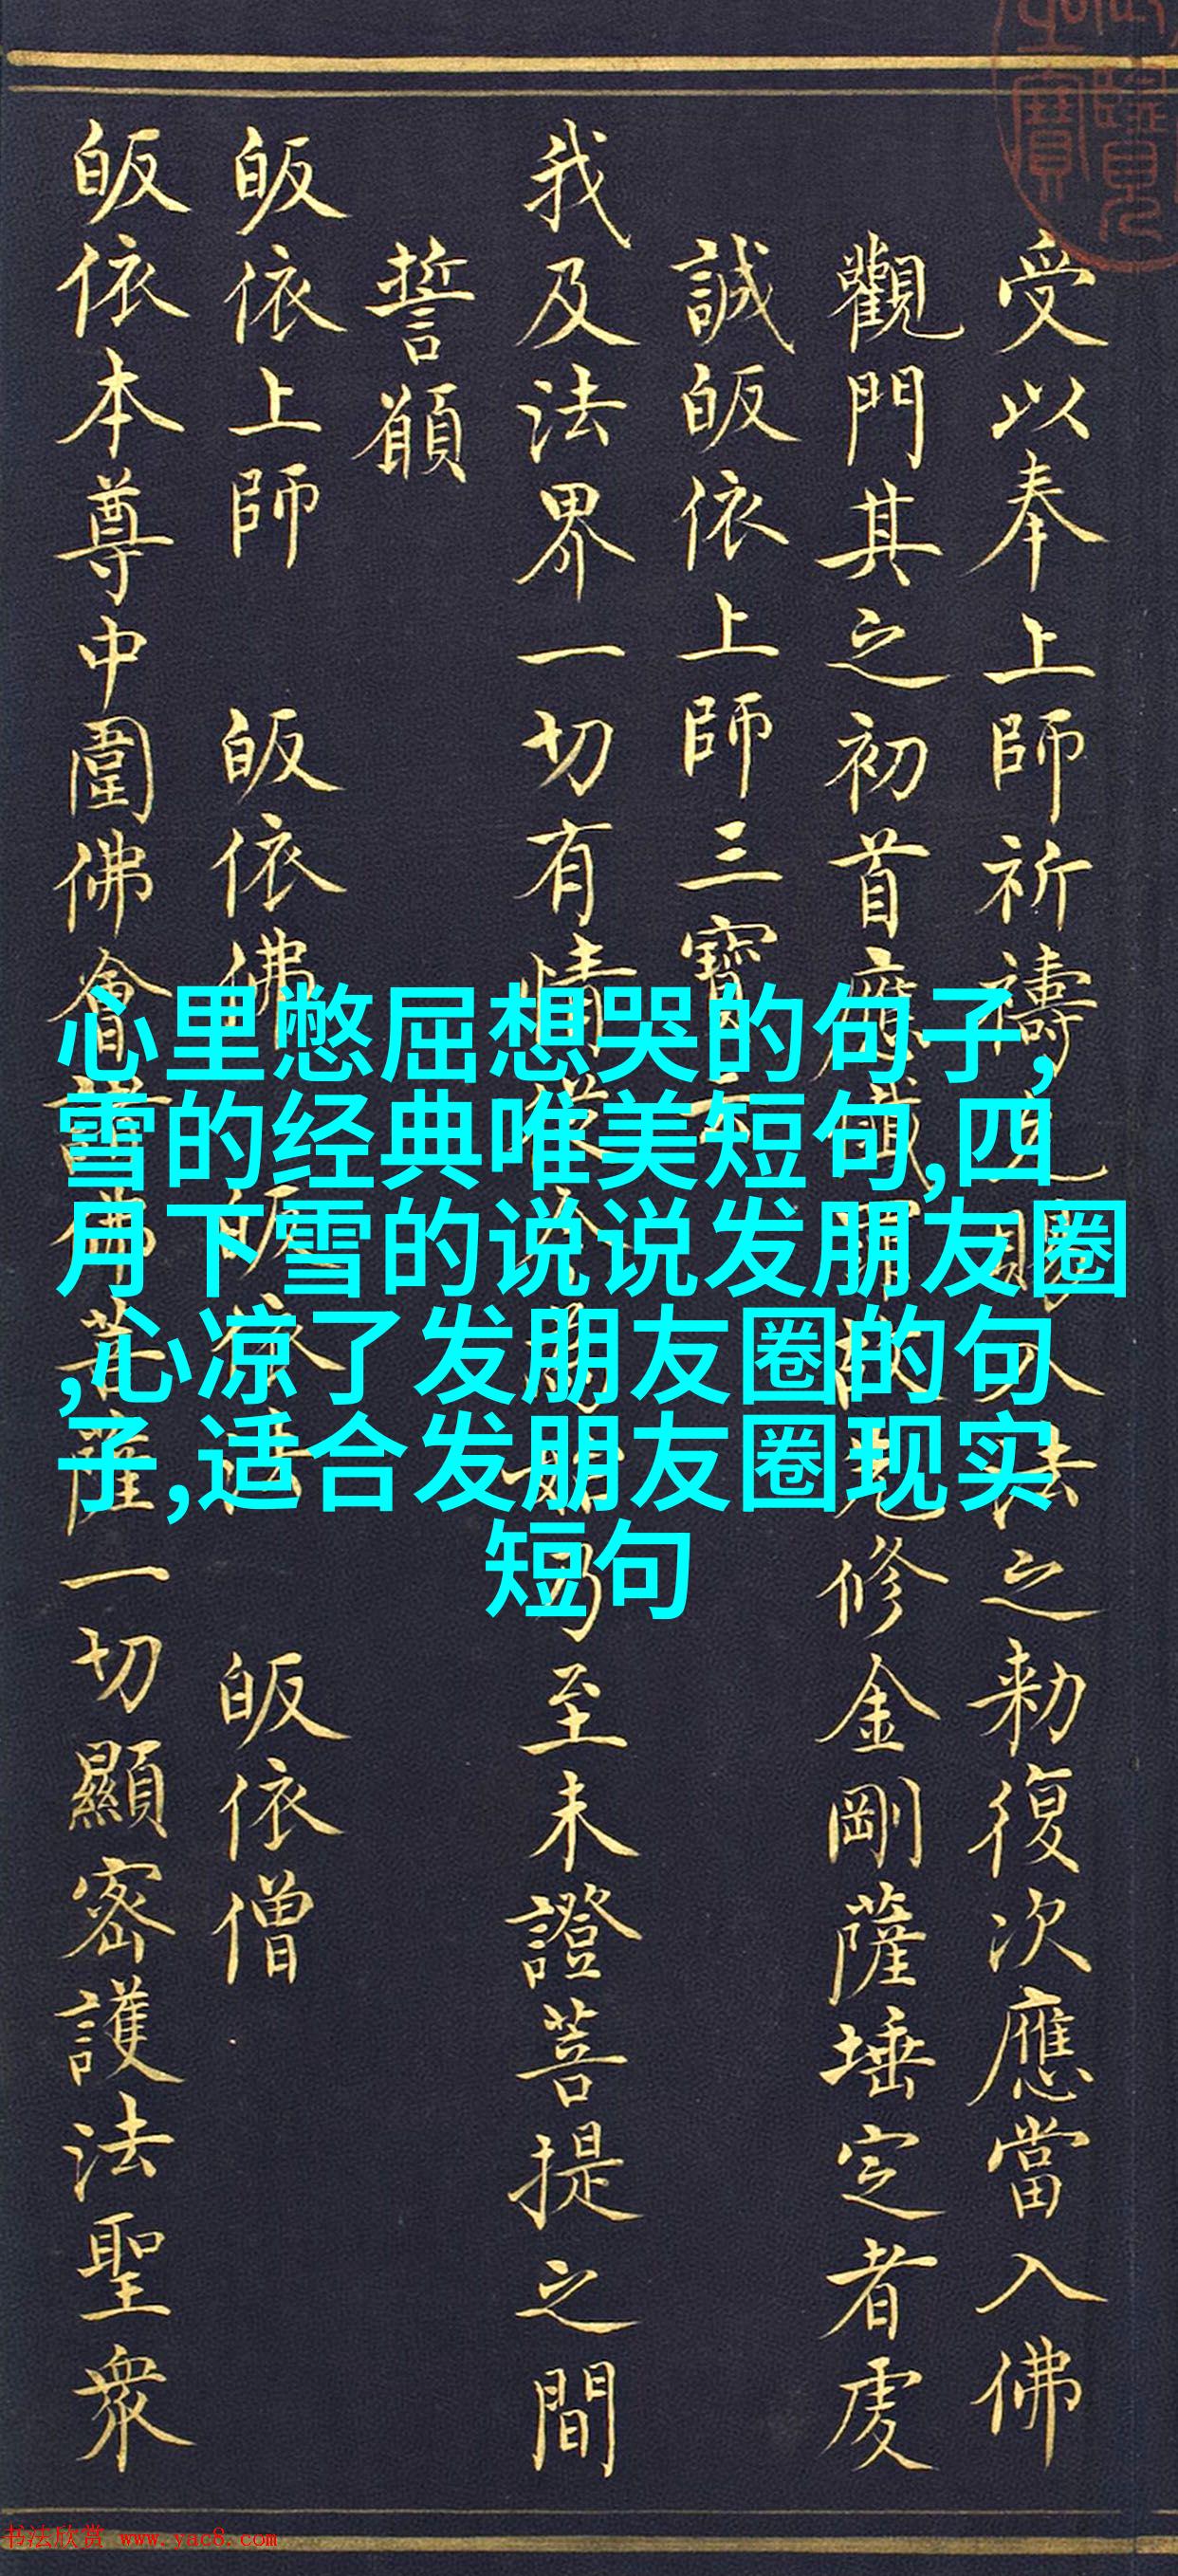 心里憋屈想哭的句子,
雪的经典唯美短句,四
月下雪的说说发朋友圈
,心凉了发朋友圈的句
子,适合发朋友圈现实
短句
受以奉上師祈禱
之勑復次應當入佛
觀門其之初首應
修金剛薩埵定者虔
誠皈依上師三寶
我及法界一切有情
至未證菩提之間
誓願
皈依上師 皈依佛
皈依僧
皈依本尊中圍佛會
一切顯密護法聖衆
书法欣赏 www.yac8.com